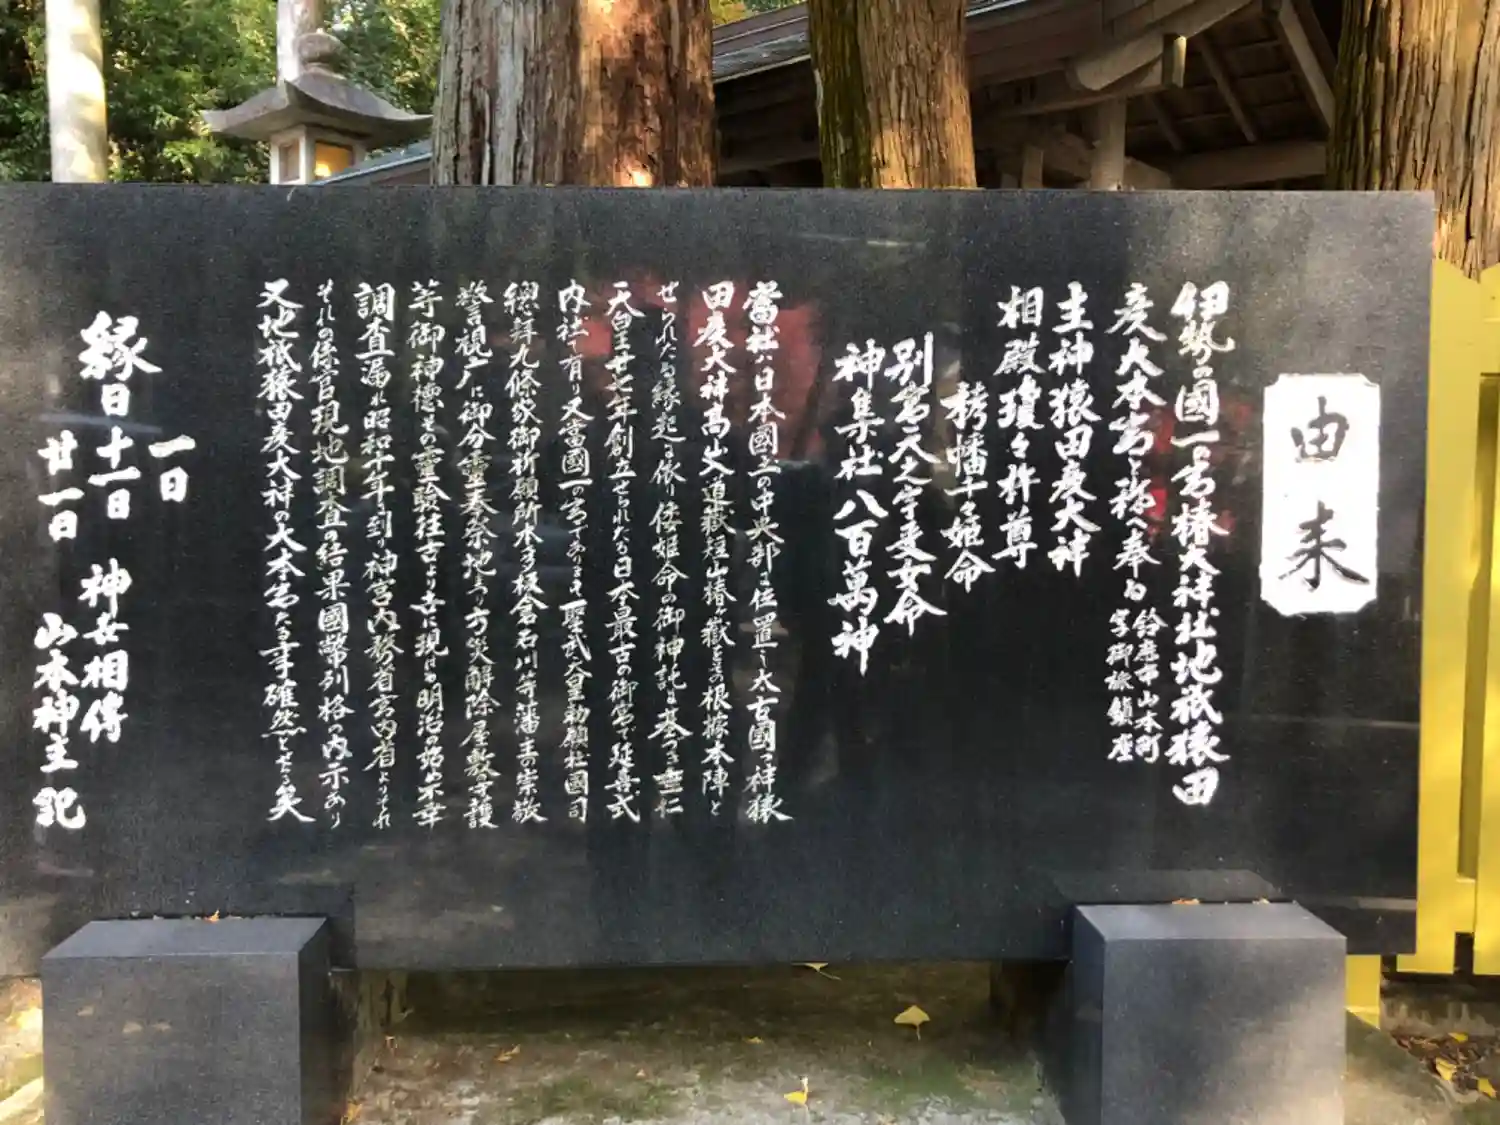 由来
伊勢の國一の宮椿大神社地祇猿田
彦大本宮と称へ奉る 鈴鹿市山本町
宮御旅鎮座
主神猿田彦大神
相殿瓊々杵尊
栲幡千々姫命
別宮天之宇受女命
神集社八百萬神
當社ハ日本國土の中央部に位置し太古國つ神猿
田彦大神高山入道嶽短山椿ヶ嶽をその根據本陣と
せられたる縁起に依り倭姫命の御神託に基づき垂仁
天皇廿七年創立せられたる日本最古の御宮で延喜式
内社に有り又當國一の宮であります聖武天皇勅願社國司
總拝九條家御祈願所本多板倉石川等藩主の崇敬
警視庁に御分靈奉祭地 方災解除屋敷守護
等御神徳その靈験往古より世に現はる明治の 不幸
調査漏れ昭和十年に到り神宮内務省宮内省よりそれ
それの係官現地調査の結果國幣列格の内示あり
又地祇猿田彦大神の大本宮たる事確然とせる矣
一日
縁日 十一日 神世相傳
廿一日 山本神主記